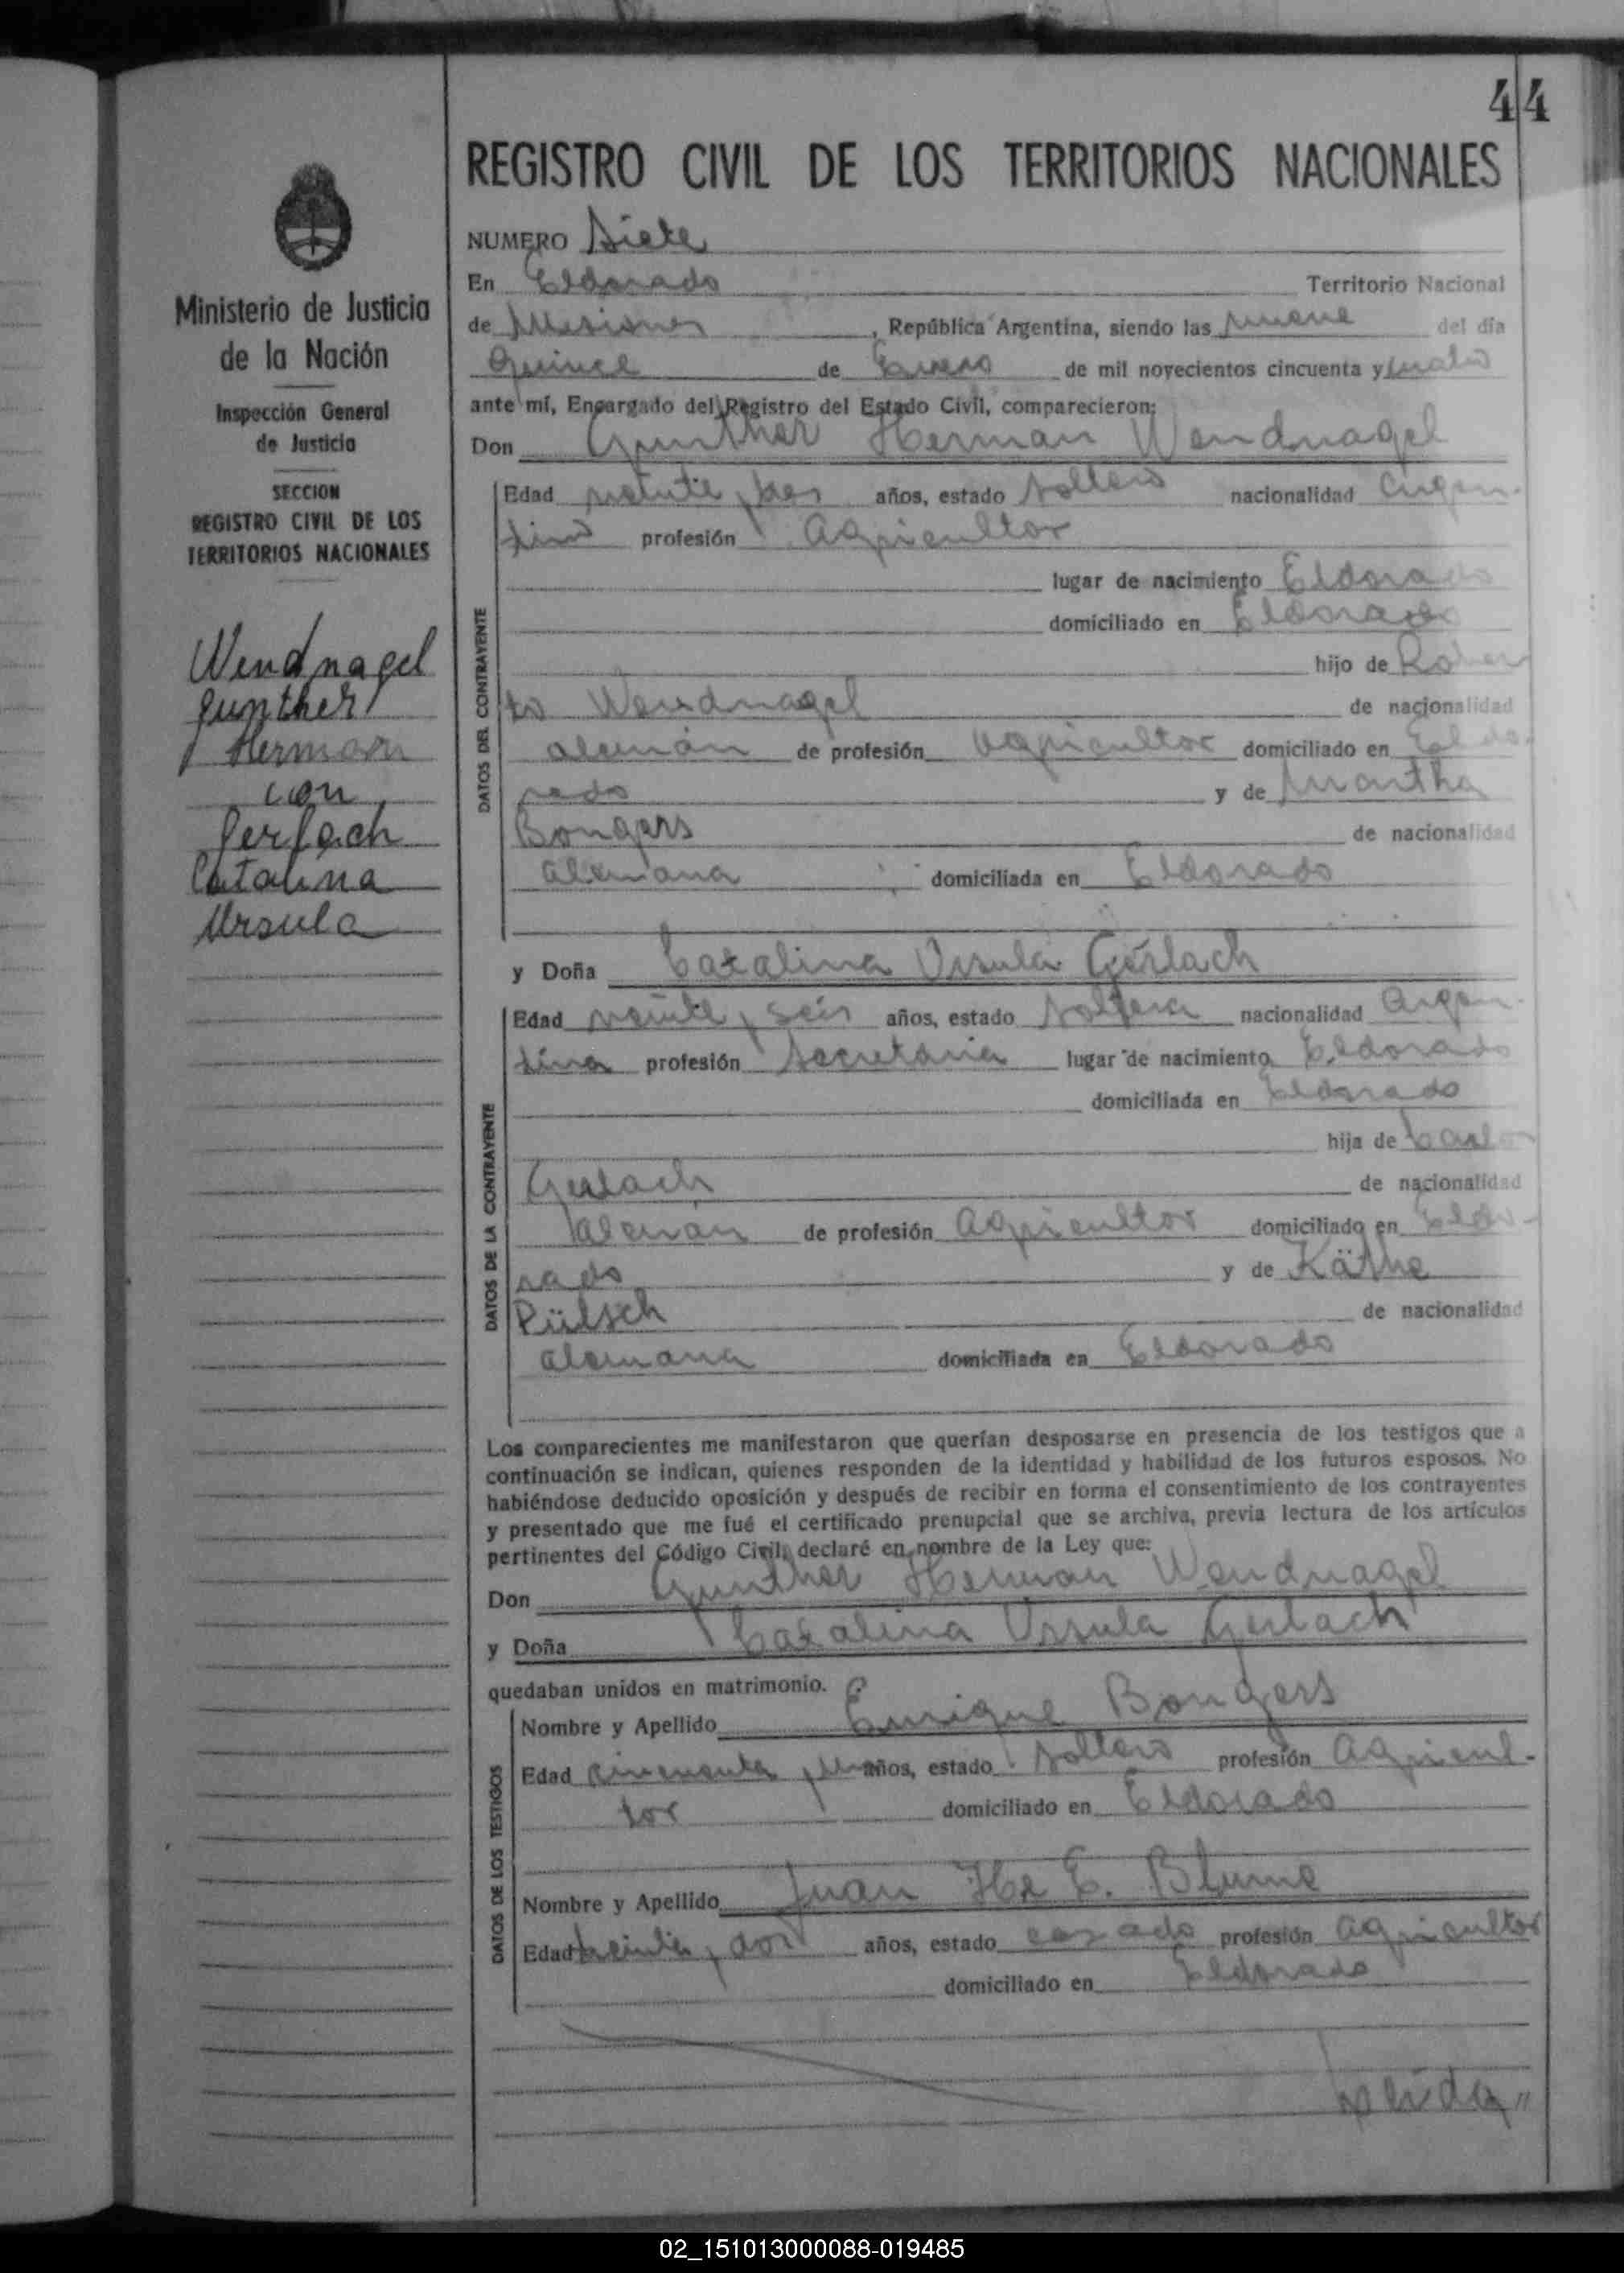 44
REGISTRO CIVIL DE LOS TERRITORIOS NACIONALES
Ministerio de Justicia
de la Nación
Inspección General
de Justicia
SECCION
REGISTRO CIVIL DE LOS
TERRITORIOS NACIONALES
Wendnagel
Gunther
Herman
con
Gerlach
Catalina
Ursula
NUMERO Siete
En Eldorado Territorio Nacional
de Misiones, República Argentina, siendo las nueve del día
Quince de Enero de mil novecientos cincuenta y cuatro
ante mí, Encargado del Registro del Estado Civil, comparecieron:
Don Gunther Herman Wendnagel
DATOS DEL CONTRAYENTE
Edad veinte y tres años, estado soltero nacionalidad Argen-
tino profesión Agricultor
lugar de nacimiento Eldorado
domiciliado en Eldorado
hijo de Rober
to Wendnagel de nacionalidad
alemán de profesión agricultor domiciliado en Eldo-
rado y de Martha
Bongers de nacionalidad
alemana domiciliada en Eldorado
y Doña Catalina Ursula Gerlach
DATOS DE LA CONTRAYENTE
Edad veinte y seis años, estado soltera nacionalidad Argen-
tina profesión Secretaria lugar de nacimiento Eldorado
domiciliada en Eldorado
hija de Carlos
Gerlach de nacionalidad
alemán de profesión agricultor domiciliado en Eldo-
rado y de Käthe
Pülsch de nacionalidad
alemana domiciliada en Eldorado
Los comparecientes me manifestaron que querían desposarse en presencia de los testigos que a
continuación se indican, quienes responden de la identidad y habilidad de los futuros esposos. No
habiéndose deducido oposición y después de recibir en forma el consentimiento de los contrayentes
y presentado que me fué el certificado prenupcial que se archiva, previa lectura de los artículos
pertinentes del Código Civil, declaré en nombre de la Ley que:
Don Gunther Herman Wendnagel
y Doña Catalina Ursula Gerlach
quedaban unidos en matrimonio.
DATOS DE LOS TESTIGOS
Nombre y Apellido Enrique Bongers
Edad cincuenta y años, estado soltero profesión Agricul-
tor domiciliado en Eldorado
Nombre y Apellido Juan E. Blume
Edad treinta y dos años, estado casado profesión agricultor
domiciliado en Eldorado
02_151013000088-019485